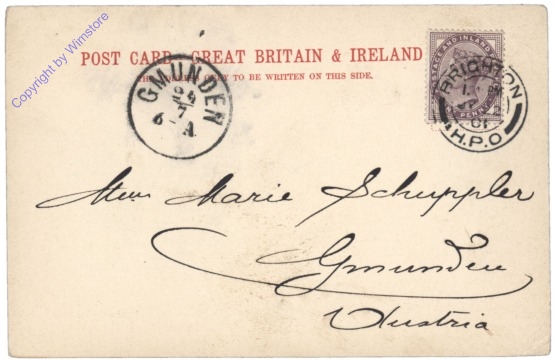 Copyright by Wimstore
POST CARD, GREAT BRITAIN & IRELAND
THE ADDRESS ONLY TO BE WRITTEN ON THIS SIDE.
GMUNDEN
24
7
6-A
POSTAGE AND INLAND
PENNY
BRIGHTON
01
H.P.O
Marie Schuppler
Gmunden
Austria